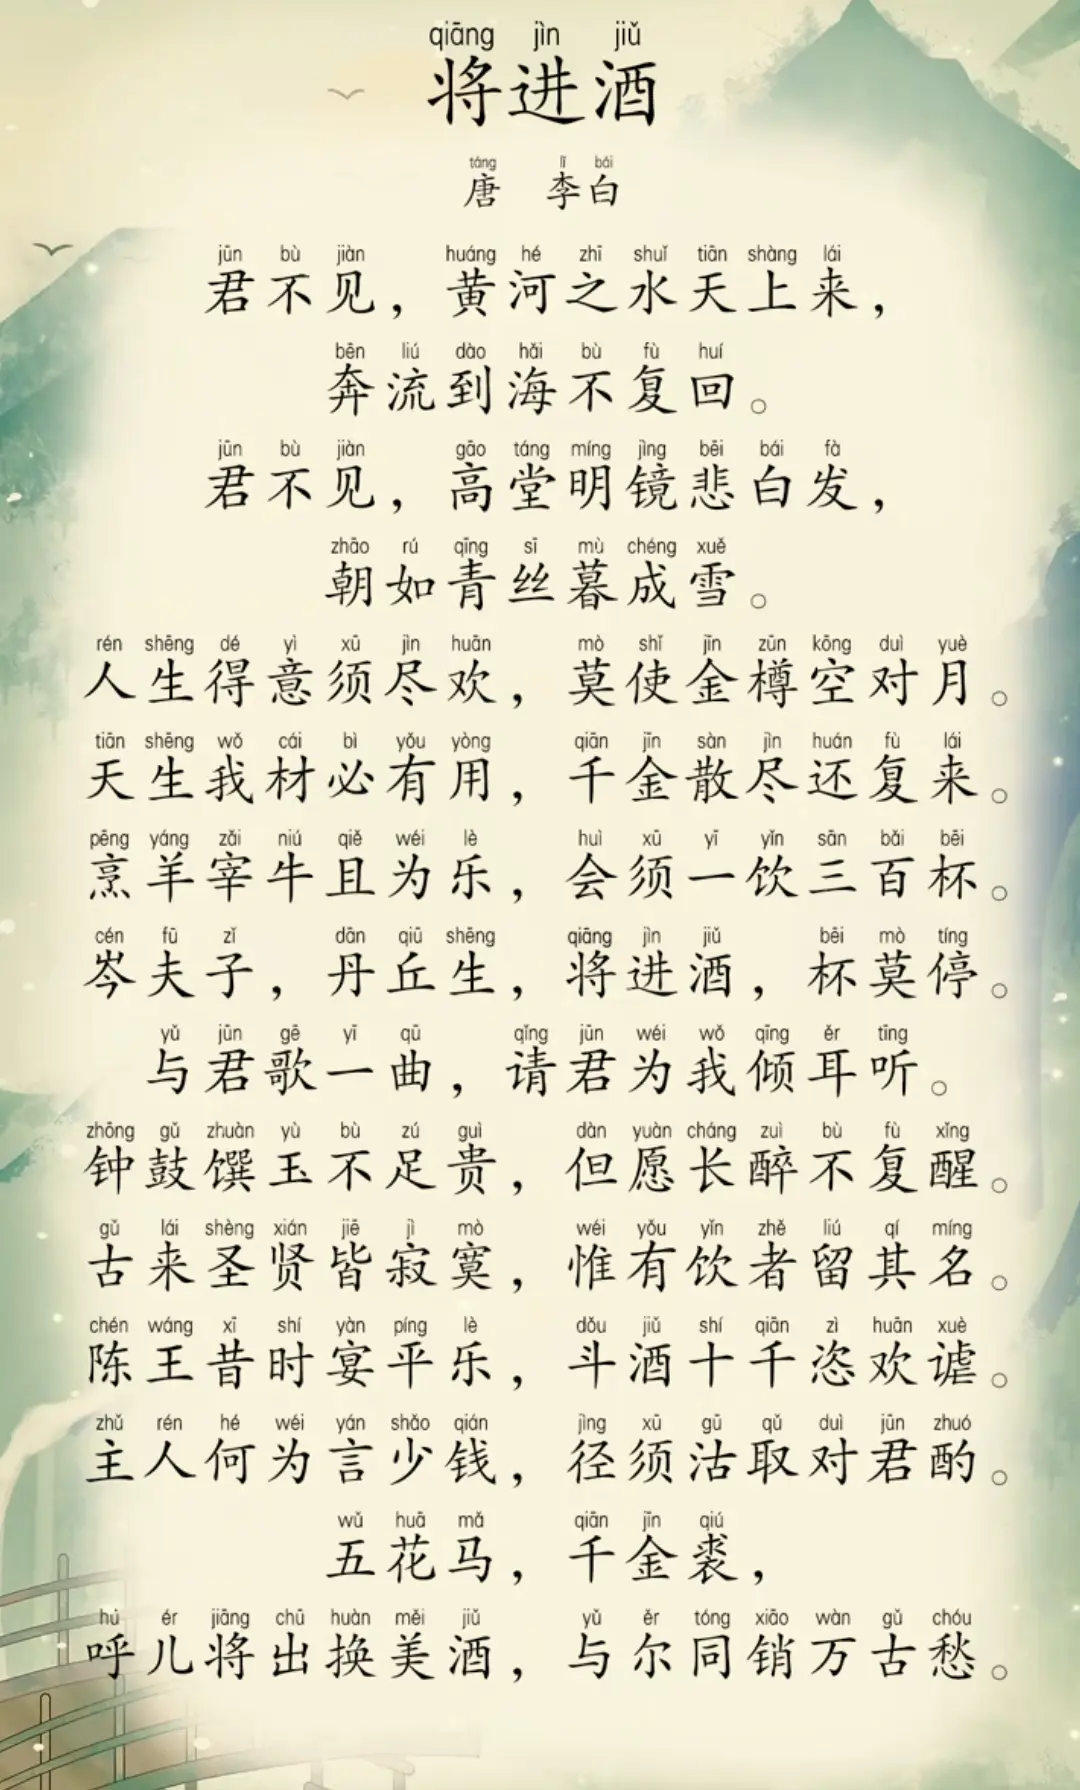 qiāng jìn jiǔ
将进酒
táng lǐ bái
唐 李白
jūn bù jiàn huáng hé zhī shuǐ tiān shàng lái
君不见，黄河之水天上来，
bēn liú dào hǎi bù fù huí
奔流到海不复回。
jūn bù jiàn gāo táng míng jìng bēi bái fà
君不见，高堂明镜悲白发，
zhāo rú qīng sī mù chéng xuě
朝如青丝暮成雪。
rén shēng dé yì xū jìn huān mò shǐ jīn zūn kōng duì yuè
人生得意须尽欢，莫使金樽空对月。
tiān shēng wǒ cái bì yǒu yòng qiān jīn sàn jìn huán fù lái
天生我材必有用，千金散尽还复来。
pēng yáng zǎi niú qiě wéi lè huì xū yī yǐn sān bǎi bēi
烹羊宰牛且为乐，会须一饮三百杯。
cén fū zǐ dān qiū shēng qiāng jìn jiǔ bēi mò tíng
岑夫子，丹丘生，将进酒，杯莫停。
yǔ jūn gē yī qū qǐng jūn wéi wǒ qīng ěr tīng
与君歌一曲，请君为我倾耳听。
zhōng gǔ zhuàn yù bù zú guì dàn yuàn cháng zuì bù fù xǐng
钟鼓馔玉不足贵，但愿长醉不复醒。
gǔ lái shèng xián jiē jì mò wéi yǒu yǐn zhě liú qí míng
古来圣贤皆寂寞，惟有饮者留其名。
chén wáng xī shí yàn píng lè dǒu jiǔ shí qiān zì huān xuè
陈王昔时宴平乐，斗酒十千恣欢谑。
zhǔ rén hé wéi yán shǎo qián jìng xū gū qǔ duì jūn zhuó
主人何为言少钱，径须沽取对君酌。
wǔ huā mǎ qiān jīn qiú
五花马，千金裘，
hū ér jiāng chū huàn měi jiǔ yǔ ěr tóng xiāo wàn gǔ chóu
呼儿将出换美酒，与尔同销万古愁。